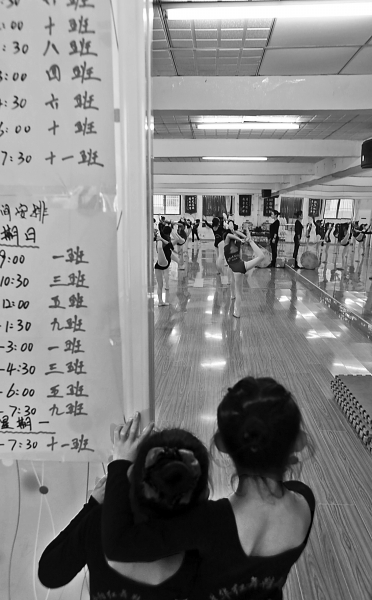 :30 八班
:00 四班
:30 六班
6:00 十班
7:30 十一班
间安排
期日
9:00 一班
10:30 三班
12:00 五班
-1:30 九班
-3:00 一班
-4:30 三班
-6:00 五班
-7:30 九班
星期一
-7:30 十一班